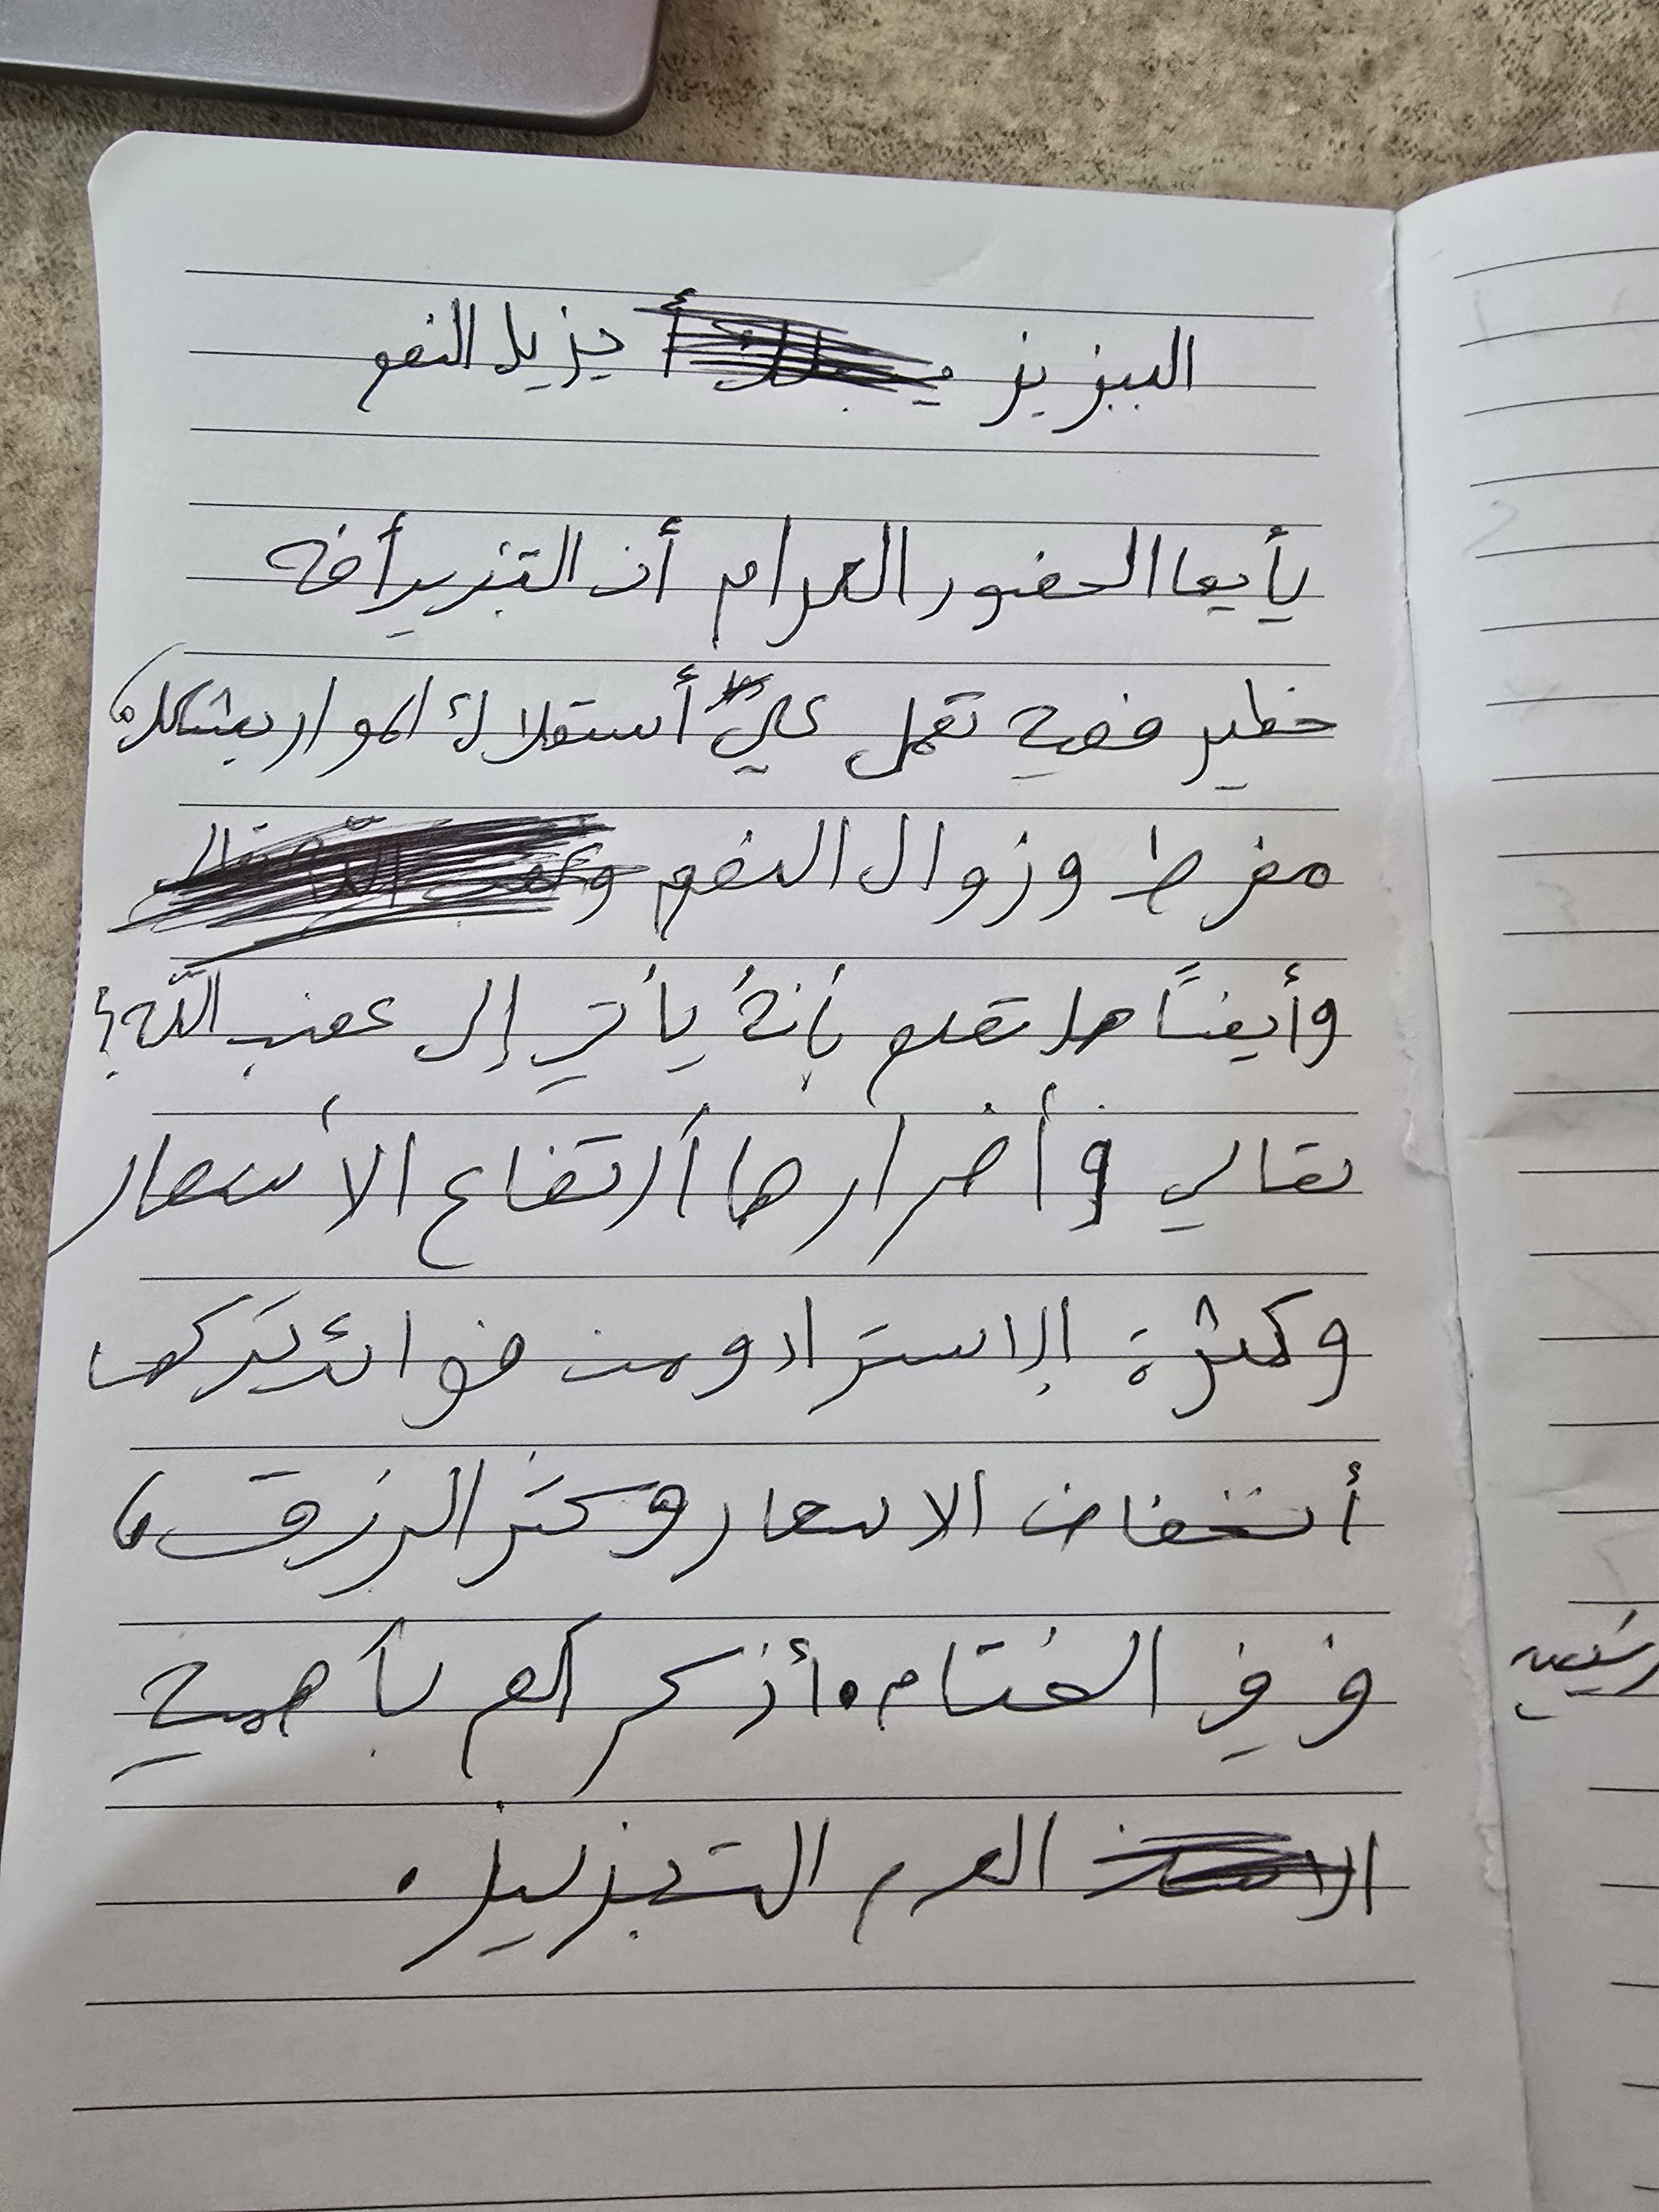 التبزيز يزيل النعم
يأيها الحضور الكرام أن التبزير أفه
خطير فهيه تعمل علي أستقلاك الموار بشكل،
مفرط وزوال النعم و
وأيضًا هل تعلم بأنهُ يأتي إلى غضب اللّه؟
تعالي وأضرارها أرتفاع الأسعار
وكثرة الإستراد ومن فوائد تركها
أنخفاض الاسعار وكثر الرزق،
ففي الختام، أذكركم بأهمية
العدم التبزير.